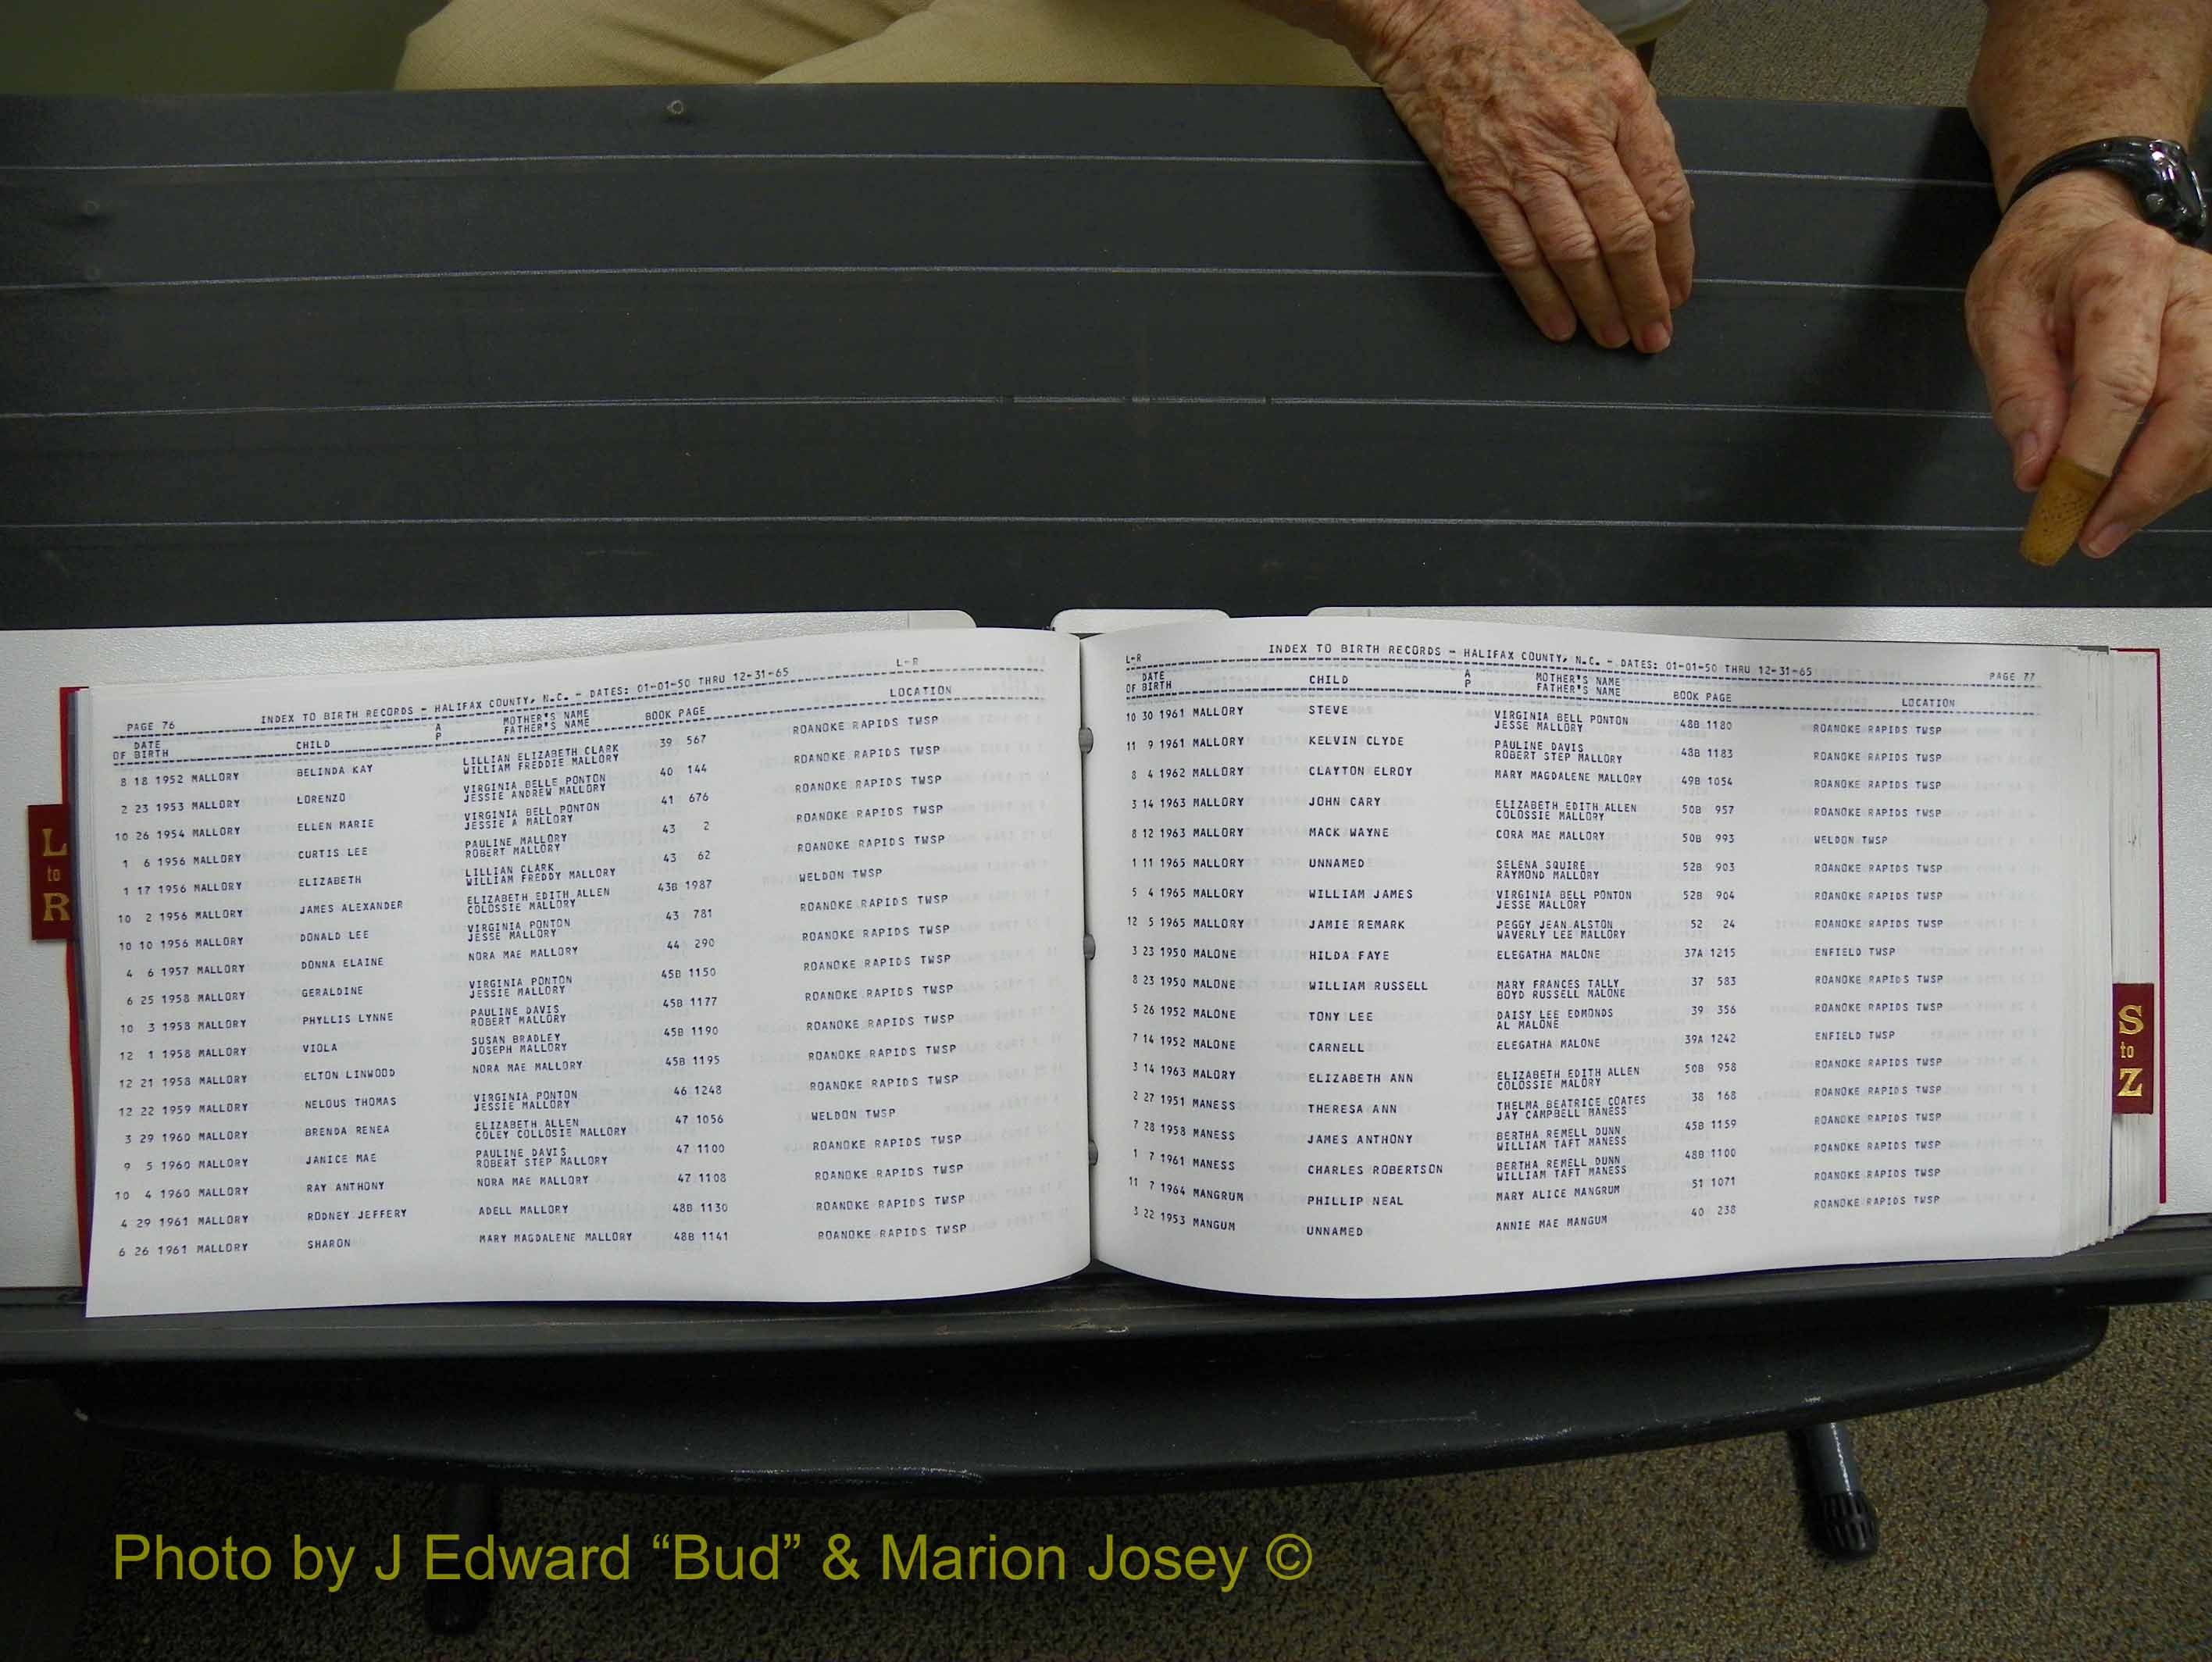 PAGE 76 INDEX TO BIRTH RECORDS - HALIFAX COUNTY, N.C. - DATES: 01-01-50 THRU 12-31-65 L-R
DATE OF BIRTH CHILD A P MOTHER'S NAME FATHER'S NAME BOOK PAGE LOCATION
8 18 1952 MALLORY BELINDA KAY LILLIAN ELIZABETH CLARK 39 567 ROANOKE RAPIDS TWSP
WILLIAM FREDDIE MALLORY
2 23 1953 MALLORY LORENZO VIRGINIA BELLE PONTON 40 144 ROANOKE RAPIDS TWSP
JESSIE ANDREW MALLORY
10 26 1954 MALLORY ELLEN MARIE VIRGINIA BELL PONTON 41 676 ROANOKE RAPIDS TWSP
JESSIE A MALLORY
1 6 1956 MALLORY CURTIS LEE PAULINE MALLORY 43 2 ROANOKE RAPIDS TWSP
ROBERT MALLORY
1 17 1956 MALLORY ELIZABETH LILLIAN CLARK 43 62 ROANOKE RAPIDS TWSP
WILLIAM FREDDY MALLORY
10 2 1956 MALLORY JAMES ALEXANDER ELIZABETH EDITH ALLEN 43B 1987 WELDON TWSP
COLOSSIE MALLORY
10 10 1956 MALLORY DONALD LEE VIRGINIA PONTON 43 781 ROANOKE RAPIDS TWSP
JESSE MALLORY
4 6 1957 MALLORY DONNA ELAINE NORA MAE MALLORY 44 290 ROANOKE RAPIDS TWSP
6 25 1958 MALLORY GERALDINE VIRGINIA PONTON 45B 1150 ROANOKE RAPIDS TWSP
JESSIE MALLORY
10 3 1958 MALLORY PHYLLIS LYNNE PAULINE DAVIS 45B 1177 ROANOKE RAPIDS TWSP
ROBERT MALLORY
12 1 1958 MALLORY VIOLA SUSAN BRADLEY 45B 1190 ROANOKE RAPIDS TWSP
JOSEPH MALLORY
12 21 1958 MALLORY ELTON LINWOOD NORA MAE MALLORY 45B 1195 ROANOKE RAPIDS TWSP
12 22 1959 MALLORY NELOUS THOMAS VIRGINIA PONTON 46 1248 ROANOKE RAPIDS TWSP
JESSIE MALLORY
3 29 1960 MALLORY BRENDA RENEA ELIZABETH ALLEN 47 1056 WELDON TWSP
COLEY COLLOSIE MALLORY
9 5 1960 MALLORY JANICE MAE PAULINE DAVIS 47 1100 ROANOKE RAPIDS TWSP
ROBERT STEP MALLORY
10 4 1960 MALLORY RAY ANTHONY NORA MAE MALLORY 47 1108 ROANOKE RAPIDS TWSP
4 29 1961 MALLORY RODNEY JEFFERY ADELL MALLORY 48B 1130 ROANOKE RAPIDS TWSP
6 26 1961 MALLORY SHARON MARY MAGDALENE MALLORY 48B 1141 ROANOKE RAPIDS TWSP
L to R
L-R INDEX TO BIRTH RECORDS - HALIFAX COUNTY, N.C. - DATES: 01-01-50 THRU 12-31-65 PAGE 77
DATE OF BIRTH CHILD A P MOTHER'S NAME FATHER'S NAME BOOK PAGE LOCATION
10 30 1961 MALLORY STEVE VIRGINIA BELL PONTON 48B 1180 ROANOKE RAPIDS TWSP
JESSE MALLORY
11 9 1961 MALLORY KELVIN CLYDE PAULINE DAVIS 48B 1183 ROANOKE RAPIDS TWSP
ROBERT STEP MALLORY
8 4 1962 MALLORY CLAYTON ELROY MARY MAGDALENE MALLORY 49B 1054 ROANOKE RAPIDS TWSP
3 14 1963 MALLORY JOHN CARY ELIZABETH EDITH ALLEN 50B 957 ROANOKE RAPIDS TWSP
COLOSSIE MALLORY
8 12 1963 MALLORY MACK WAYNE CORA MAE MALLORY 50B 993 WELDON TWSP
1 11 1965 MALLORY UNNAMED SELENA SQUIRE 52B 903 ROANOKE RAPIDS TWSP
RAYMOND MALLORY
5 4 1965 MALLORY WILLIAM JAMES VIRGINIA BELL PONTON 52B 904 ROANOKE RAPIDS TWSP
JESSE MALLORY
12 5 1965 MALLORY JAMIE REMARK PEGGY JEAN ALSTON 52 24 ROANOKE RAPIDS TWSP
WAVERLY LEE MALLORY
3 23 1950 MALONE HILDA FAYE ELEGATHA MALONE 37A 1215 ENFIELD TWSP
8 23 1950 MALONE WILLIAM RUSSELL MARY FRANCES TALLY 37 583 ROANOKE RAPIDS TWSP
BOYD RUSSELL MALONE
5 26 1952 MALONE TONY LEE DAISY LEE EDMONDS 39 356 ROANOKE RAPIDS TWSP
AL MALONE
7 14 1952 MALONE CARNELL ELEGATHA MALONE 39A 1242 ENFIELD TWSP
3 14 1963 MALORY ELIZABETH ANN ELIZABETH EDITH ALLEN 50B 958 ROANOKE RAPIDS TWSP
COLOSSIE MALORY
2 27 1951 MANESS THERESA ANN THELMA BEATRICE COATES 38 168 ROANOKE RAPIDS TWSP
JAY CAMPBELL MANESS
7 28 1958 MANESS JAMES ANTHONY BERTHA REMELL DUNN 45B 1159 ROANOKE RAPIDS TWSP
WILLIAM TAFT MANESS
1 7 1961 MANESS CHARLES ROBERTSON BERTHA REMELL DUNN 48B 1100 ROANOKE RAPIDS TWSP
WILLIAM TAFT MANESS
11 7 1964 MANGRUM PHILLIP NEAL MARY ALICE MANGRUM 51 1071 ROANOKE RAPIDS TWSP
3 22 1953 MANGUM UNNAMED ANNIE MAE MANGUM 40 238 ROANOKE RAPIDS TWSP
S to Z
Photo by J Edward “Bud” & Marion Josey ©